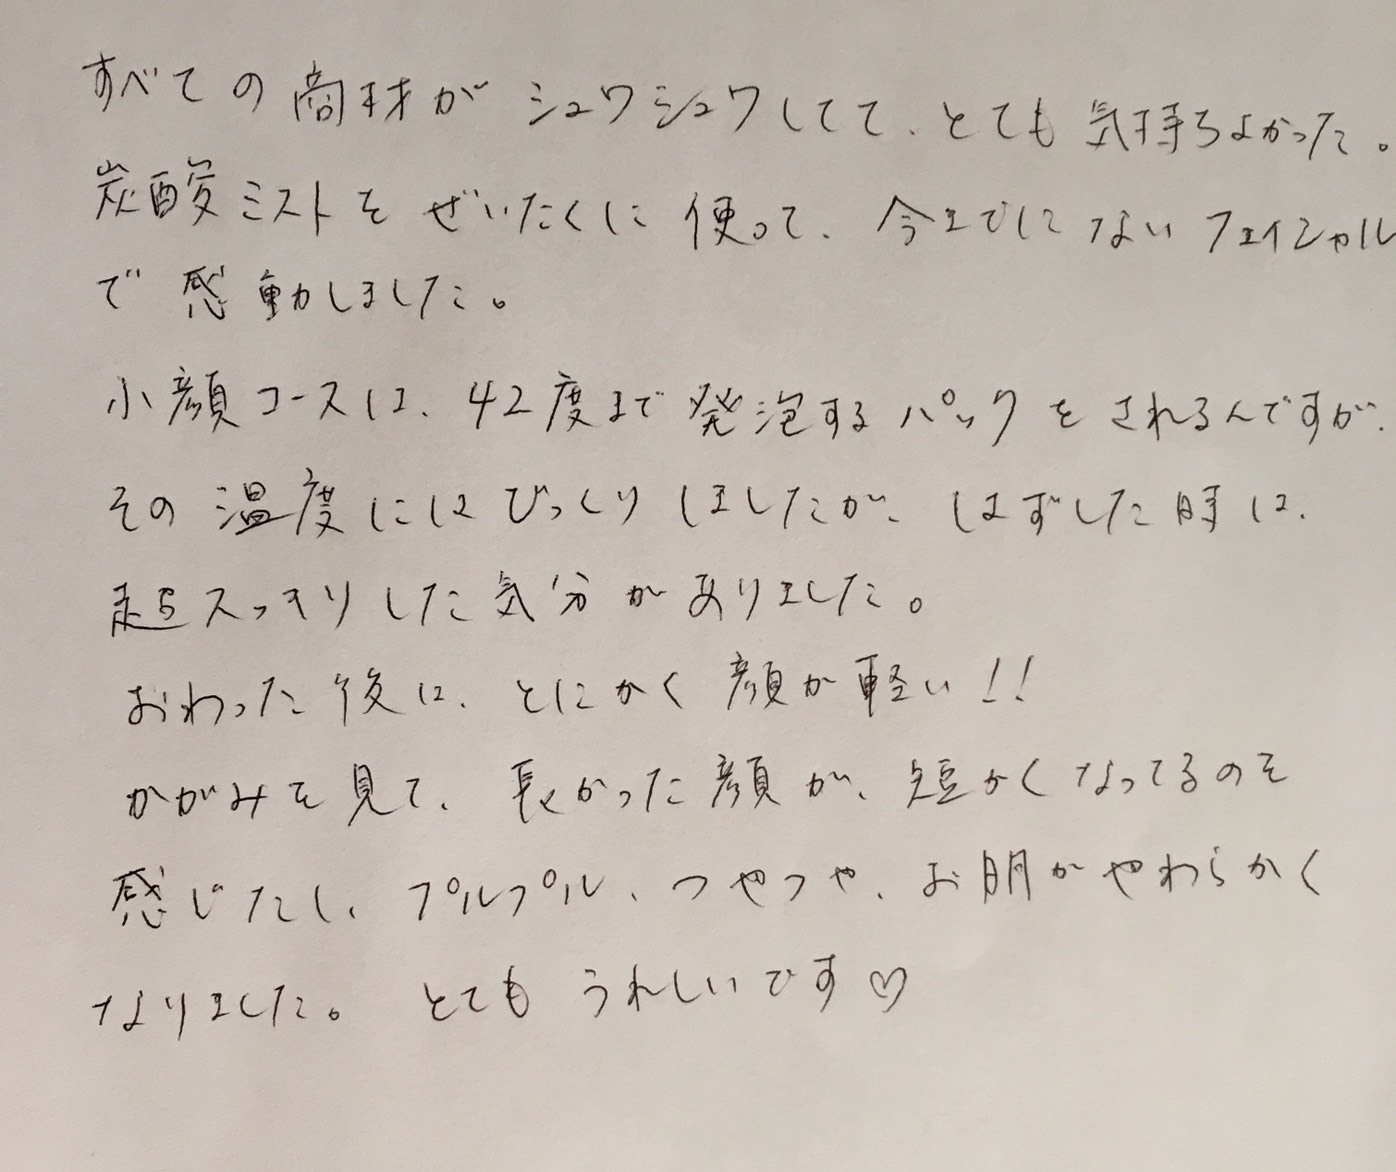 すべての商材がシュワシュワしてて、とても気持ちよかった。
炭酸ミストをぜいたくに使って、今までにないフェイシャル
で感動しました。
小顔コースは、42度まで発泡するパックをされるんですが、
その温度にはびっくりしましたが、はずした時は、
超スッキリした気分がありました。
おわった後は、とにかく顔が軽い!!
かがみを見て、長かった顔が、短かくなってるのを
感じたし、プルプル、つやつや、お肌がやわらかく
なりました。とてもうれしいです♡